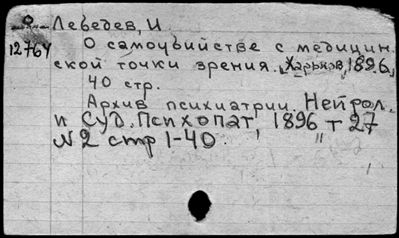 Лебедев, И.
12764
О самоубийстве с медицин.
ской точки зрения. Харьков, 1896,
40 стр.
Архив психиатрии. Нейрол.
и Суд. Психопат, 1896 т 27
N2 стр 1-40.